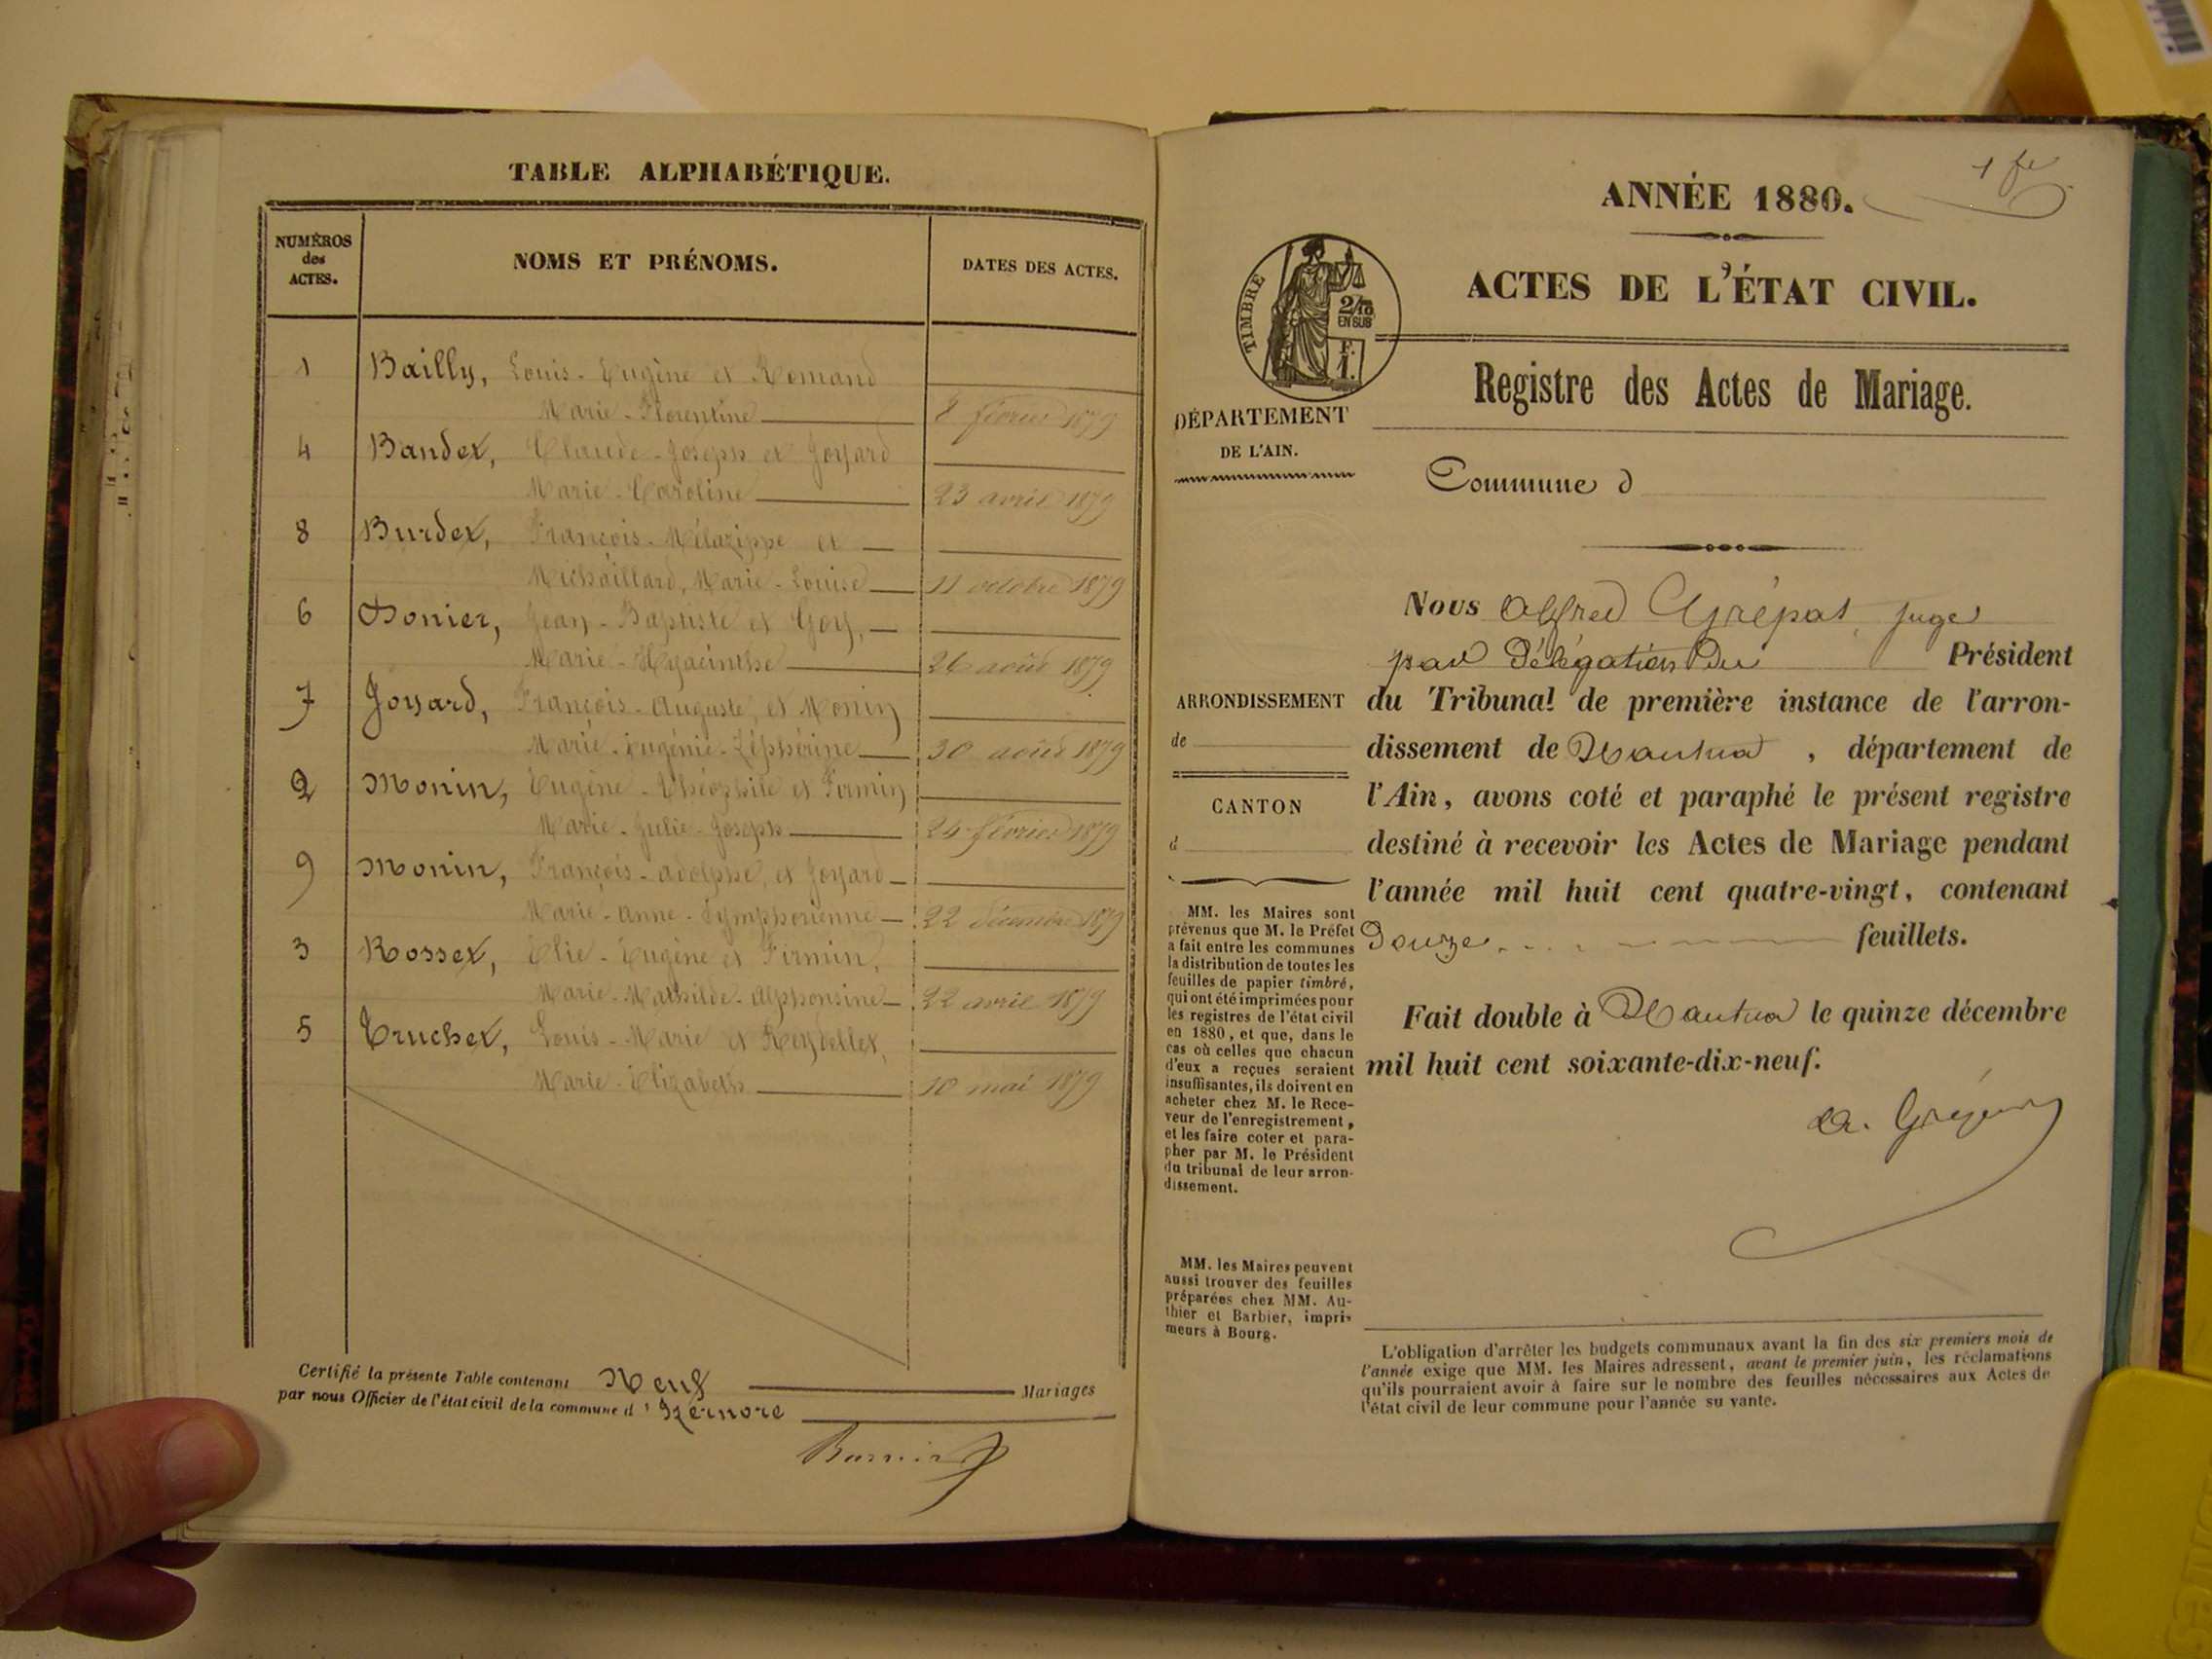 TABLE ALPHABÉTIQUE.
NUMÉROS
des
ACTES.
NOMS ET PRÉNOMS.
DATES DES ACTES.
1 Bailly, Louis-Eugène et Romand
Marie-Florentine 8 février 1879
4 Bandet, Claude-Joseph et Joyard
Marie-Caroline 23 avril 1879
8 Burdet, François-Mélazippe et
Michaillard, Marie-Louise 11 octobre 1879
6 Donier, Jean-Baptiste et Goy,
Marie-Hyacinthe 26 août 1879
7 Joyard, François-Auguste, et Monin
Marie-Eugénie-Zéphérine 30 août 1879
2 Monin, Eugène-Théophile et Firmin
Marie-Julie-Joseph février 1879
9 Monin, François-Adolphe, et Joyard
Marie-Anne-Symphorienne 22 décembre 1879
3 Rosset, Elie-Eugène et Firmin,
Marie-Mathilde-Alphonsine 22 avril 1879
5 Truchet, Louis-Marie et Reydellet,
Marie-Elizabeth 10 mai 1879
Certifié la présente Table contenant Neuf Mariages
par nous Officier de l'état civil de la commune d'Izernore
1 fe
ANNÉE 1880.
ACTES DE L'ÉTAT CIVIL.
TIMBRE
2/10
EN SUS
F.
1.
Registre des Actes de Mariage.
DÉPARTEMENT
DE L'AIN.
Commune d
Nous Alfred Grépat, juge
par délégation du Président
du Tribunal de première instance de l'arron-
dissement de Nantua, département de
l'Ain, avons coté et paraphé le présent registre
destiné à recevoir les Actes de Mariage pendant
l'année mil huit cent quatre-vingt, contenant
Douze feuillets.
Fait double à Nantua le quinze décembre
mil huit cent soixante-dix-neuf.
ARRONDISSEMENT
de
CANTON
d
MM. les Maires sont
prévenus que M. le Préfet
a fait entre les communes
la distribution de toutes les
feuilles de papier timbré,
qui ont été imprimées pour
les registres de l'état civil
en 1880, et que, dans le
cas où celles que chacun
d'eux a reçues seraient
insuffisantes, ils doivent en
acheter chez M. le Rece-
veur de l'enregistrement,
et les faire coter et para-
pher par M. le Président
du tribunal de leur arron-
dissement.
MM. les Maires peuvent
aussi trouver des feuilles
préparées chez MM. Au-
thier et Barbier, impri-
meurs à Bourg.
L'obligation d'arrêter les budgets communaux avant la fin des six premiers mois de
l'année exige que MM. les Maires adressent, avant le premier juin, les réclamations
qu'ils pourraient avoir à faire sur le nombre des feuilles nécessaires aux Actes de
l'état civil de leur commune pour l'année su vante.